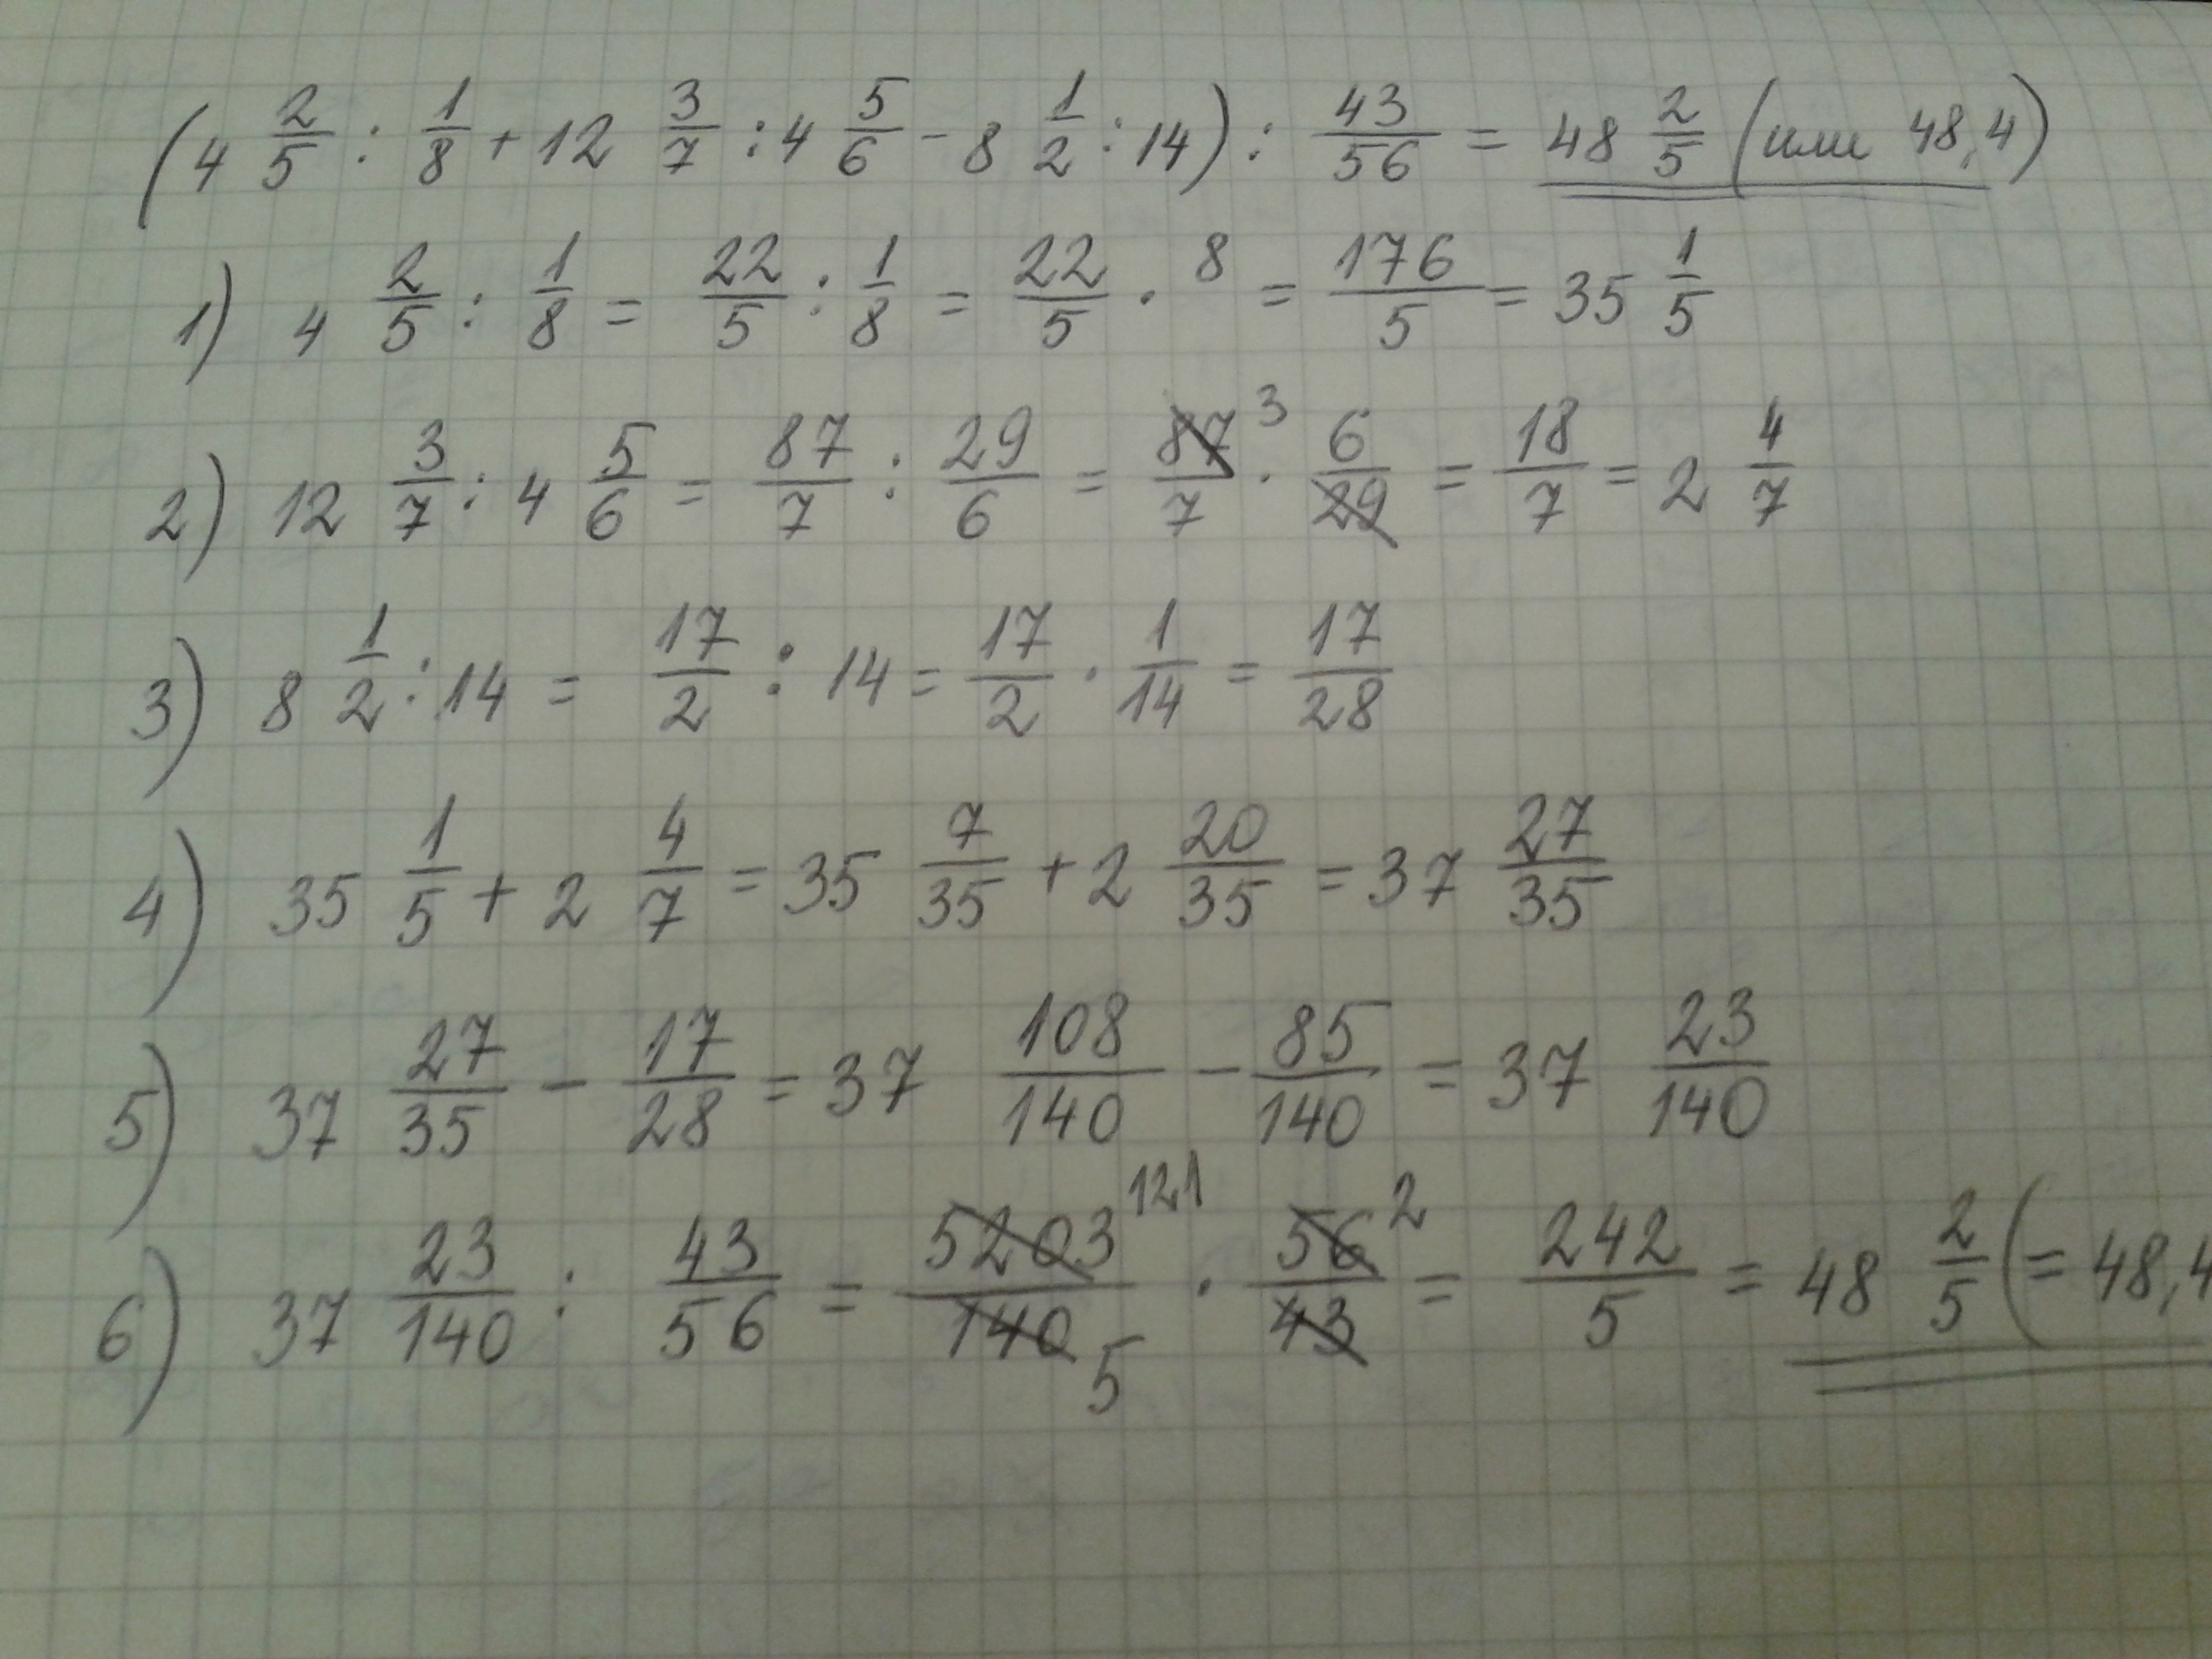 (4 2/5 : 1/8 + 12 3/7 : 4 5/6 - 8 1/2 : 14) : 43/56 = 48 2/5 (или 48,4)
1) 4 2/5 : 1/8 = 22/5 : 1/8 = 22/5 · 8 = 176/5 = 35 1/5
2) 12 3/7 : 4 5/6 = 87/7 : 29/6 = 87 3/7 · 6/29 = 18/7 = 2 4/7
3) 8 1/2 : 14 = 17/2 : 14 = 17/2 · 1/14 = 17/28
4) 35 1/5 + 2 4/7 = 35 7/35 + 2 20/35 = 37 27/35
5) 37 27/35 - 17/28 = 37 108/140 - 85/140 = 37 23/140
6) 37 23/140 : 43/56 = 5203 121/140 5 · 56 2/43 = 242/5 = 48 2/5 (= 48,4